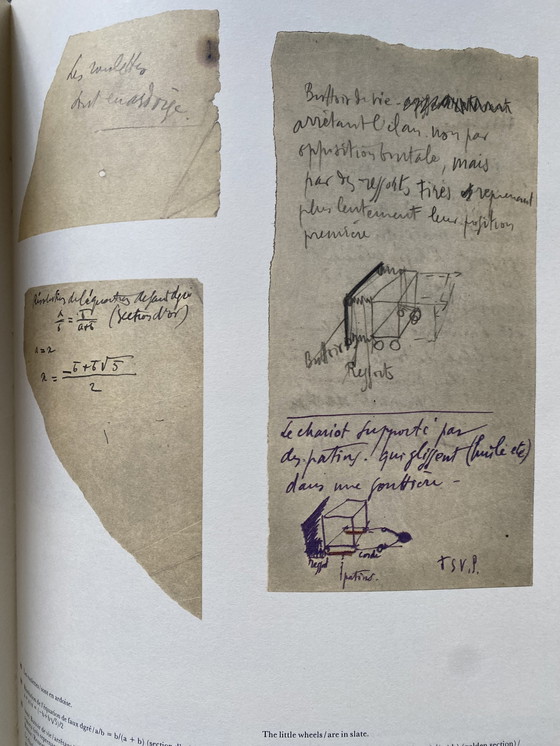 Les roulettes
sont en ardoise.
Résolution de l'équation de faux dgré
a/b = b/a+b (Section d'or)
a = x
x = -b+b√5/2
Buttoir de vie -
arrêtant l'élan non par
opposition brutale, mais
par des ressorts tirés reprenant
plus lentement leur position
première
Buttoir
Ressorts
Le chariot supporté par
des patins. qui glissent (huile etc)
dans une gouttière -
ressort
corde
patins.
T S V. P.
sont en ardoise.
de l'équation de faux dgré/a/b = b/(a + b)
The little wheels/are in slate.
(golden section)/